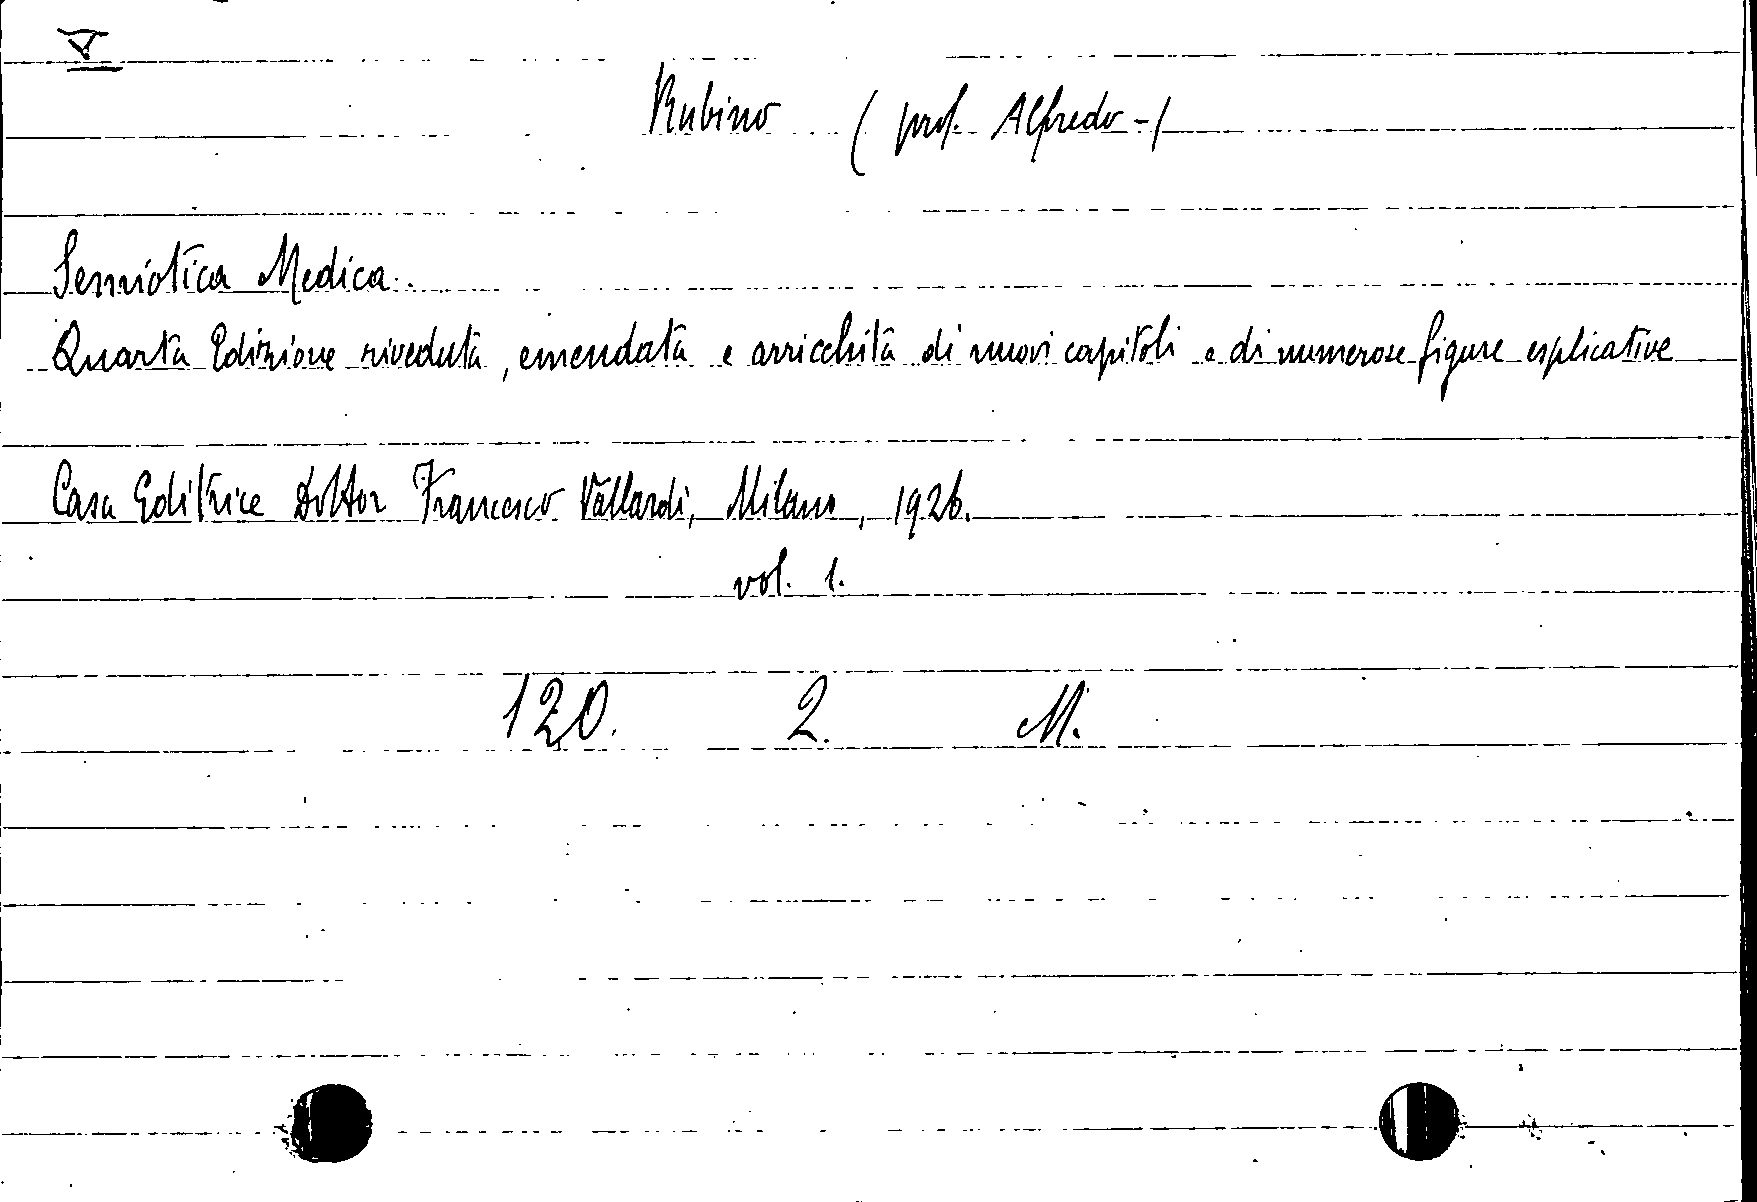 V
Rubino ( prof. Alfredo - )
Semiotica Medica.
Quarta Edizione riveduta, emendata e arricchita di nuovi capitoli e di numerose figure esplicative
Casa Editrice Dottor Francesco Vallardi, Milano, 1926.
vol. 1.
120. 2. M.